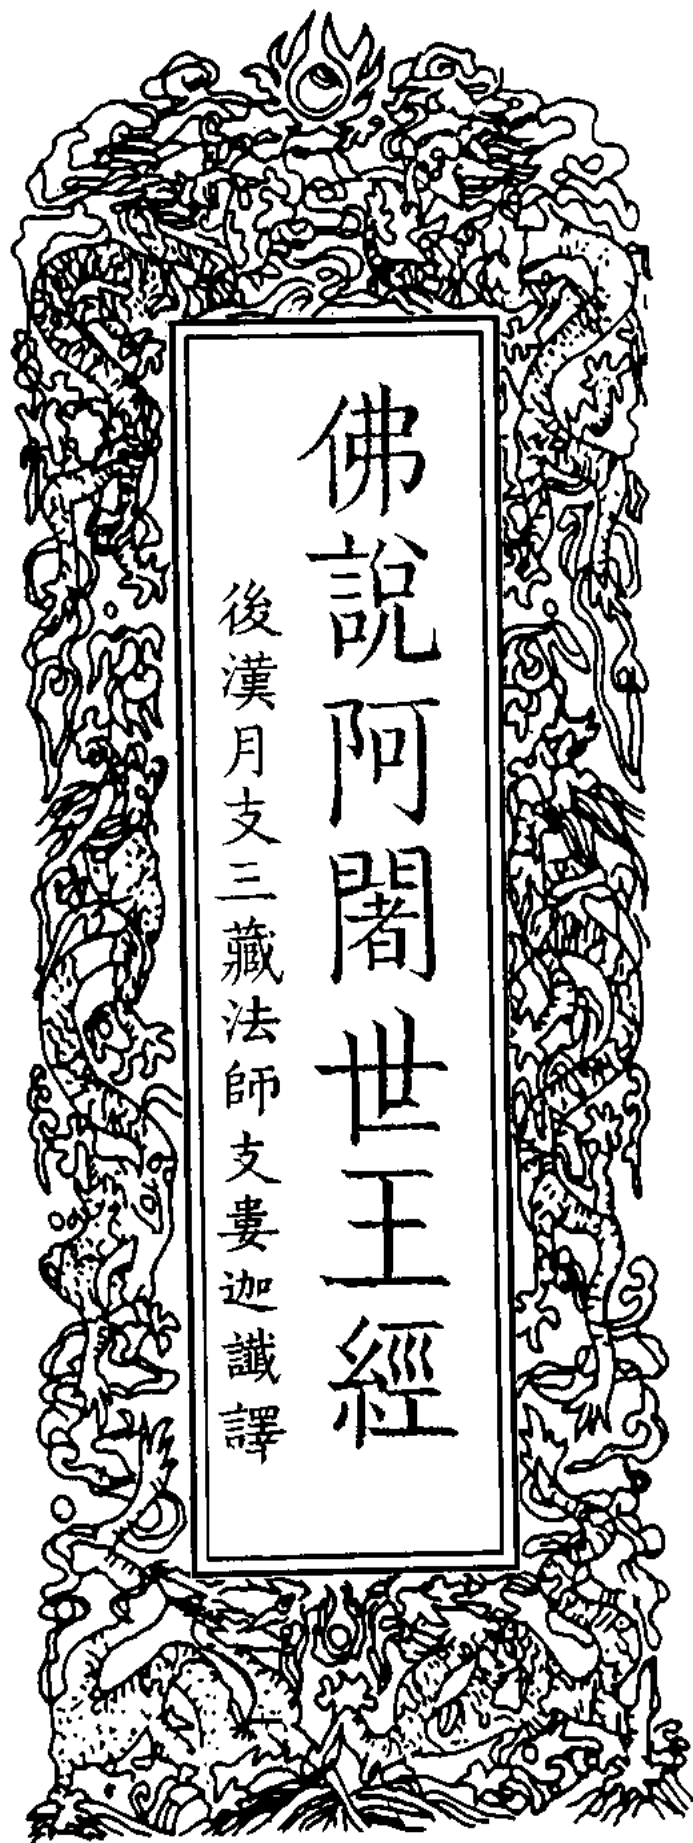 佛說阿闍世王經
後漢月支三藏法師支婁迦讖譯